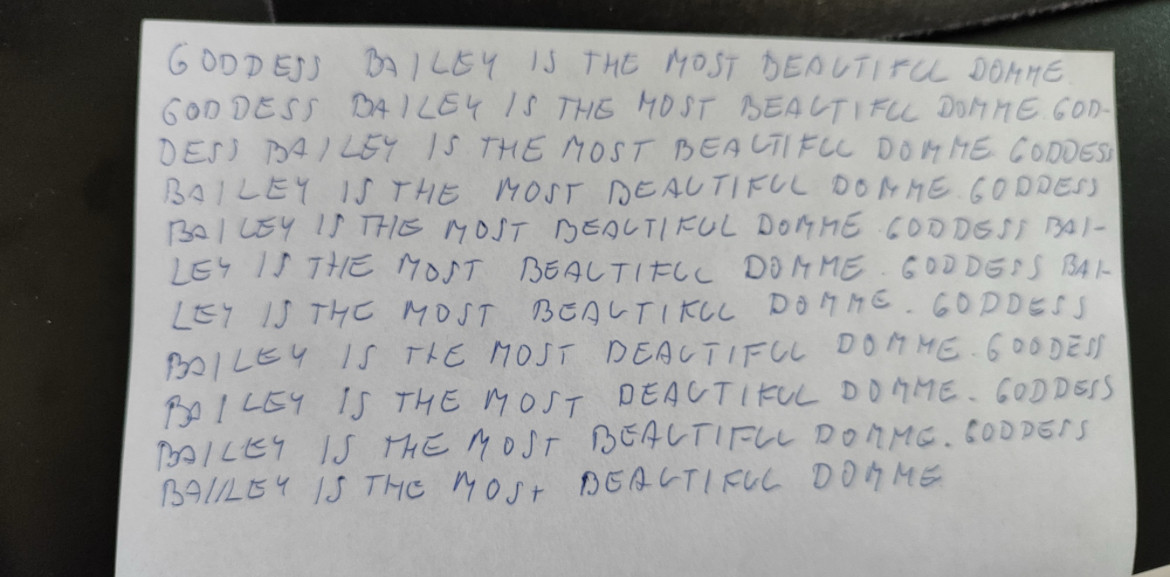 GODDESS BAILEY IS THE MOST BEAUTIFUL DOMME.
GODDESS BAILEY IS THE MOST BEAUTIFUL DOMME. GOD-
DESS BAILEY IS THE MOST BEAUTIFUL DOMME GODDESS
BAILEY IS THE MOST BEAUTIFUL DOMME. GODDESS
BAILEY IS THE MOST BEAUTIFUL DOMME. GODDESS BAI-
LEY IS THE MOST BEAUTIFUL DOMME. GODDESS BAI-
LEY IS THE MOST BEAUTIFUL DOMME. GODDESS
BAILEY IS THE MOST BEAUTIFUL DOMME. GODDESS
BAILEY IS THE MOST BEAUTIFUL DOMME. GODDESS
BAILEY IS THE MOST BEAUTIFUL DOMME. GODDESS
BAILEY IS THE MOST BEAUTIFUL DOMME